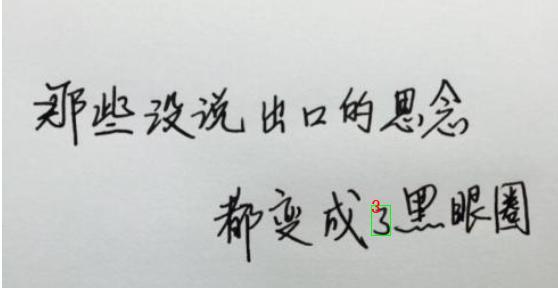 那些没说出口的思念
都变成了黑眼圈
3